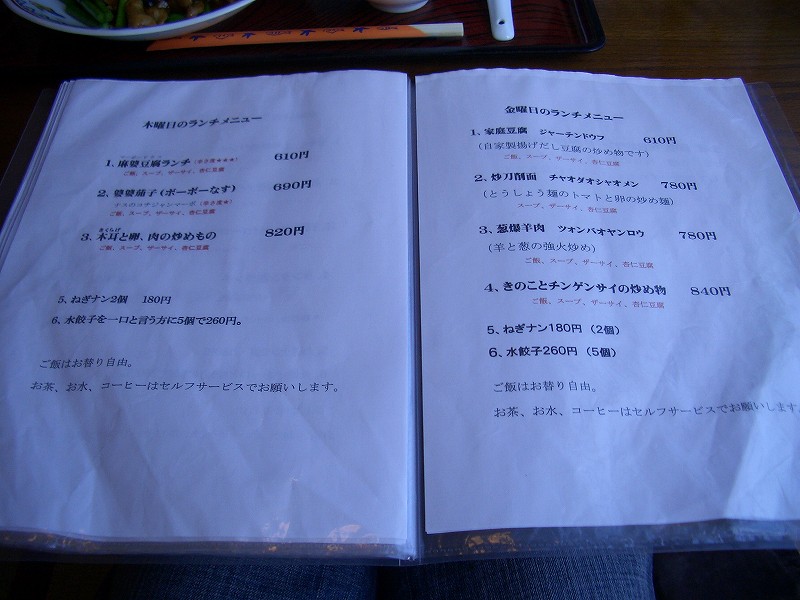 木曜日のランチメニュー
1、麻婆豆腐ランチ(辛さ度★★★) 610円
ご飯、スープ、ザーサイ、杏仁豆腐
2、婆婆茄子(ポーポーなす) 690円
ナスのコチジャンマーボ(辛さ度★)
ご飯、スープ、ザーサイ、杏仁豆腐
きくらげ
3、木耳と卵、肉の炒めもの 820円
ご飯、スープ、ザーサイ、杏仁豆腐
5、ねぎナン2個 180円
6、水餃子を一口と言う方に5個で260円。
ご飯はお替り自由。
お茶、お水、コーヒーはセルフサービスでお願いします。
金曜日のランチメニュー
1、家庭豆腐 ジャーテンドウフ 610円
(自家製揚げだし豆腐の炒め物です)
ご飯、スープ、ザーサイ、杏仁豆腐
2、炒刀削面 チャオダオシャオメン 780円
(とうしょう麺のトマトと卵の炒め麺)
スープ、ザーサイ、杏仁豆腐
3、葱爆羊肉 ツォンバオヤンロウ 780円
(羊と葱の強火炒め)
ご飯、スープ、ザーサイ、杏仁豆腐
4、きのことチンゲンサイの炒め物 840円
ご飯、スープ、ザーサイ、杏仁豆腐
5、ねぎナン180円(2個)
6、水餃子260円(5個)
ご飯はお替り自由。
お茶、お水、コーヒーはセルフサービスでお願いします。